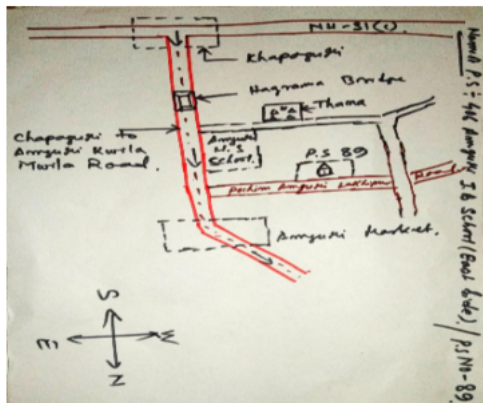 NH-31(C).
Khapaguri
Hagrama Bridge
Thana
Chapaguri to
Amguri Kurla
Murla Road.
Amguri
School.
P.S 89
Amguri
Road
Amguri Market.
S
E
W
N
Name P.S: 416 Amguri J.B School (East Side). / P.S No-89